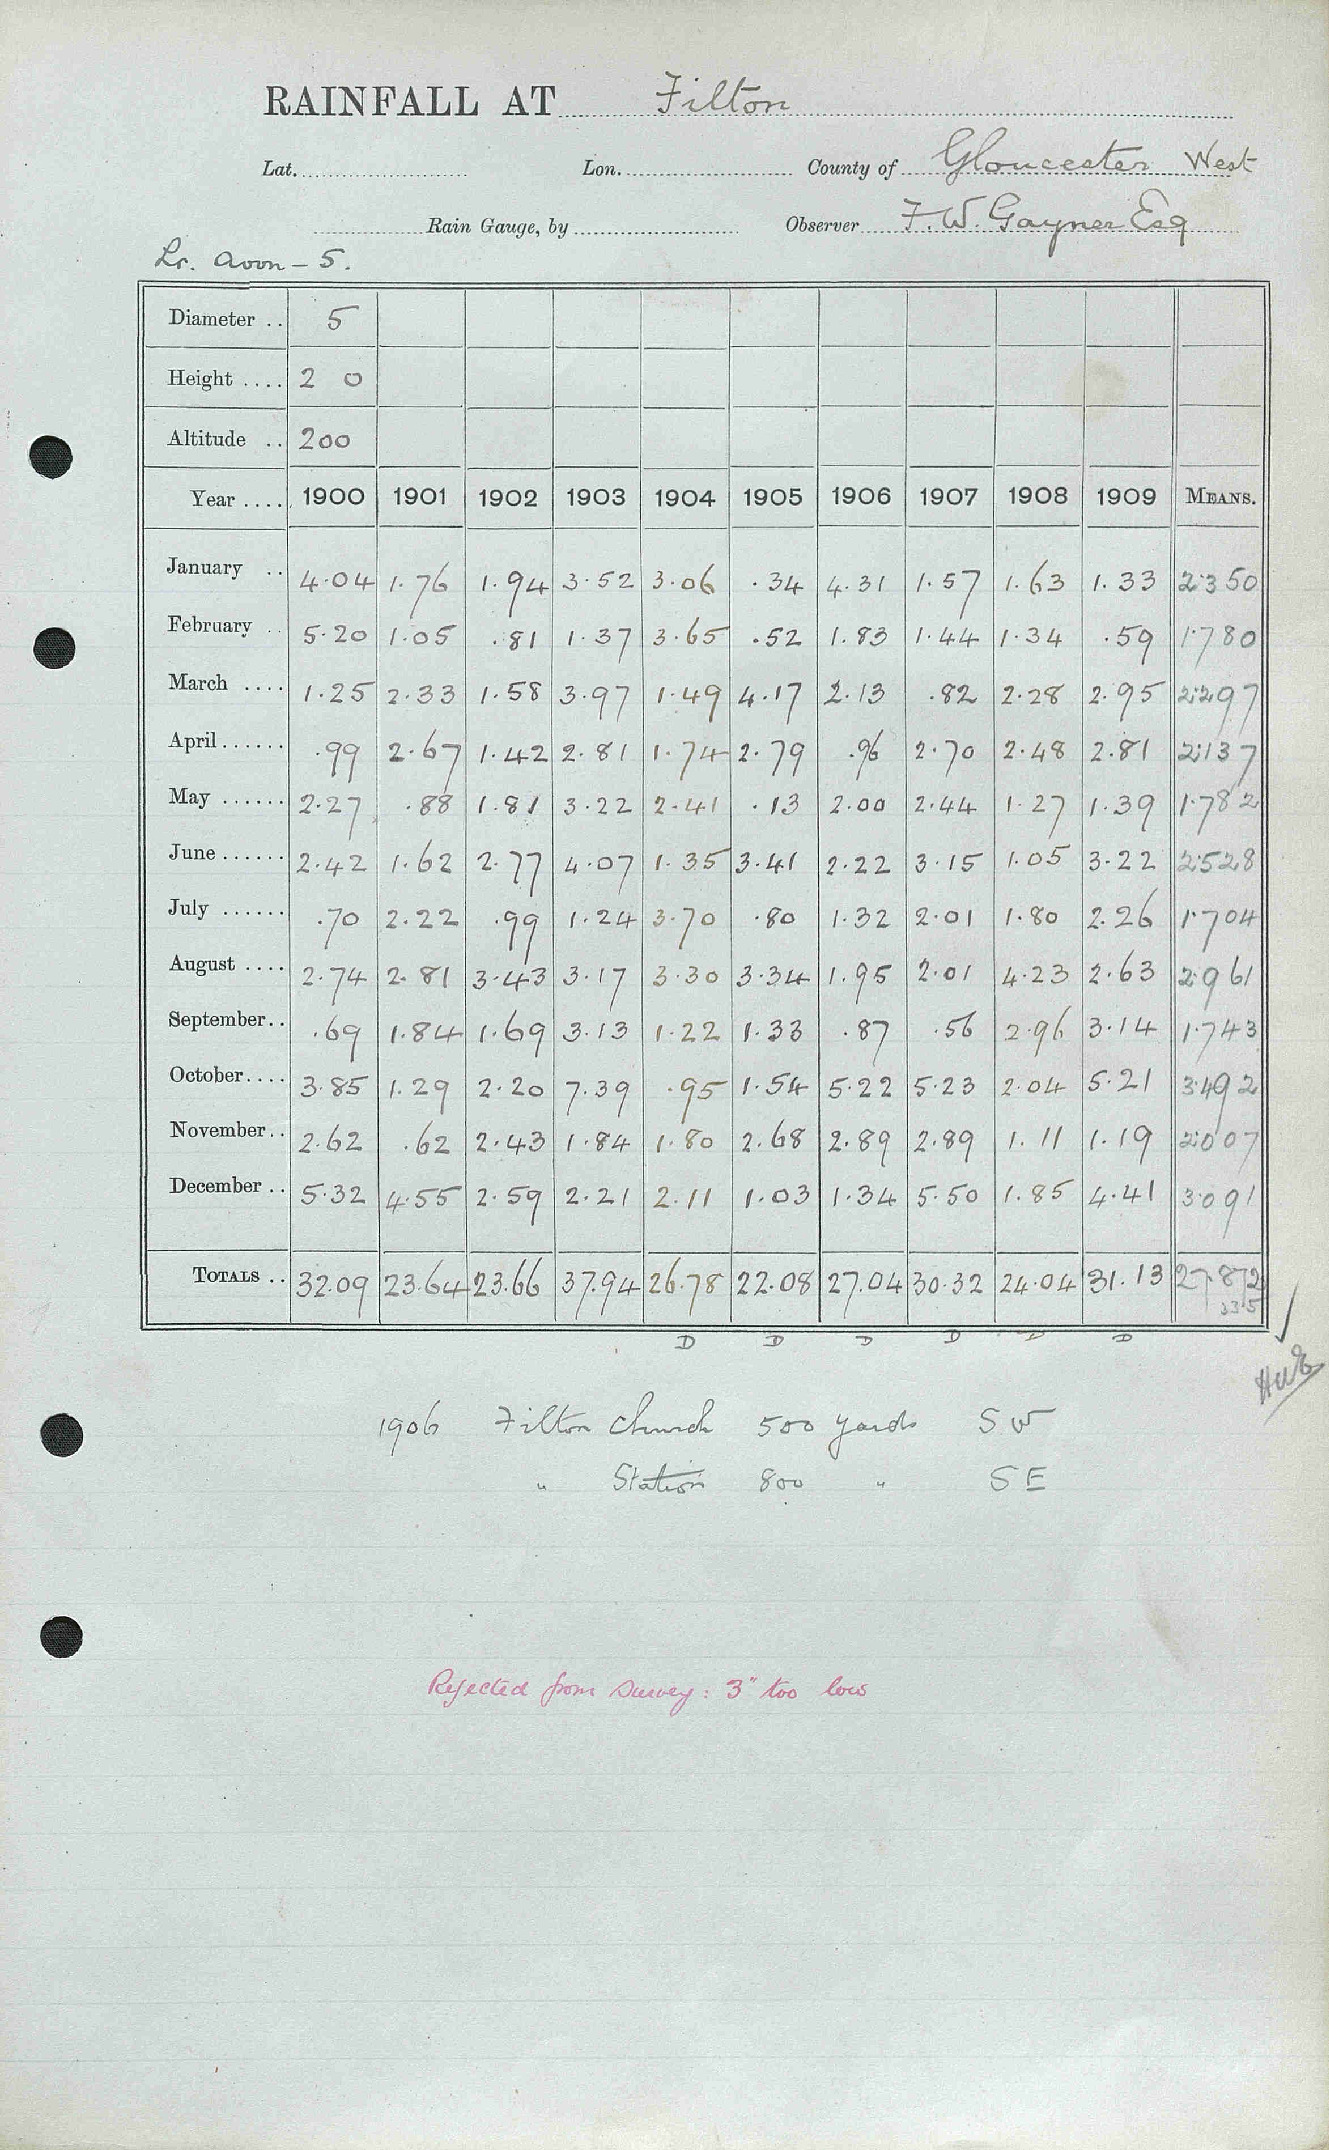 RAINFALL AT Filton
Lat. Lon. County of Gloucester West
Rain Gauge, by Observer F.W. Gayner Esq
Lr. Avon - 5.
Diameter .. 5
Height .... 2 0
Altitude .. 200
Year .... 1900 1901 1902 1903 1904 1905 1906 1907 1908 1909 MEANS.
January .. 4.04 1.76 1.94 3.52 3.06 .34 4.31 1.57 1.63 1.33 2.350
February .. 5.20 1.05 .81 1.37 3.65 .52 1.83 1.44 1.34 .59 1.780
March .... 1.25 2.33 1.58 3.97 1.49 4.17 2.13 .82 2.28 2.95 2.297
April ...... .99 2.67 1.42 2.81 1.74 2.79 .96 2.70 2.48 2.81 2.137
May ...... 2.27 .88 1.81 3.22 2.41 .13 2.00 2.44 1.27 1.39 1.782
June ...... 2.42 1.62 2.77 4.07 1.35 3.41 2.22 3.15 1.05 3.22 2.528
July ...... .70 2.22 .99 1.24 3.70 .80 1.32 2.01 1.80 2.26 1.704
August .... 2.74 2.81 3.43 3.17 3.30 3.34 1.95 2.01 4.23 2.63 2.961
September.. .69 1.84 1.69 3.13 1.22 1.33 .87 .56 2.96 3.14 1.743
October.... 3.85 1.29 2.20 7.39 .95 1.54 5.22 5.23 2.04 5.21 3.492
November.. 2.62 .62 2.43 1.84 1.80 2.68 2.89 2.89 1.11 1.19 2.007
December .. 5.32 4.55 2.59 2.21 2.11 1.03 1.34 5.50 1.85 4.41 3.091
TOTALS .. 32.09 23.64 23.66 37.94 26.78 22.08 27.04 30.32 24.04 31.13 27.872
D D D D D D
1906 Filton Church 500 yards SW
" Station 800 " SE
Rejected from Survey: 3" too low